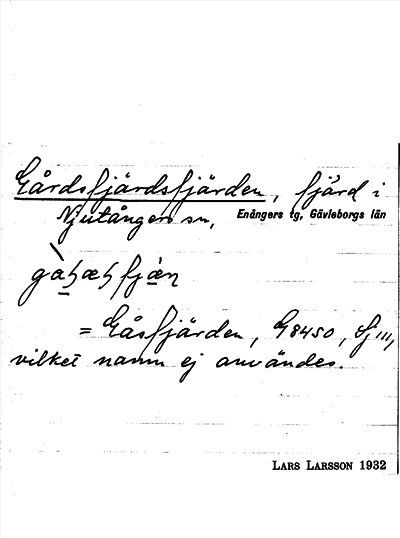 Gårdsfjärdsfjärden, fjärd i
Njutångers sn, Enångers tg, Gävleborgs län
= Gåsfjärden, G 8450, Sj 111,
vilket namn ej användes.
LARS LARSSON 1932